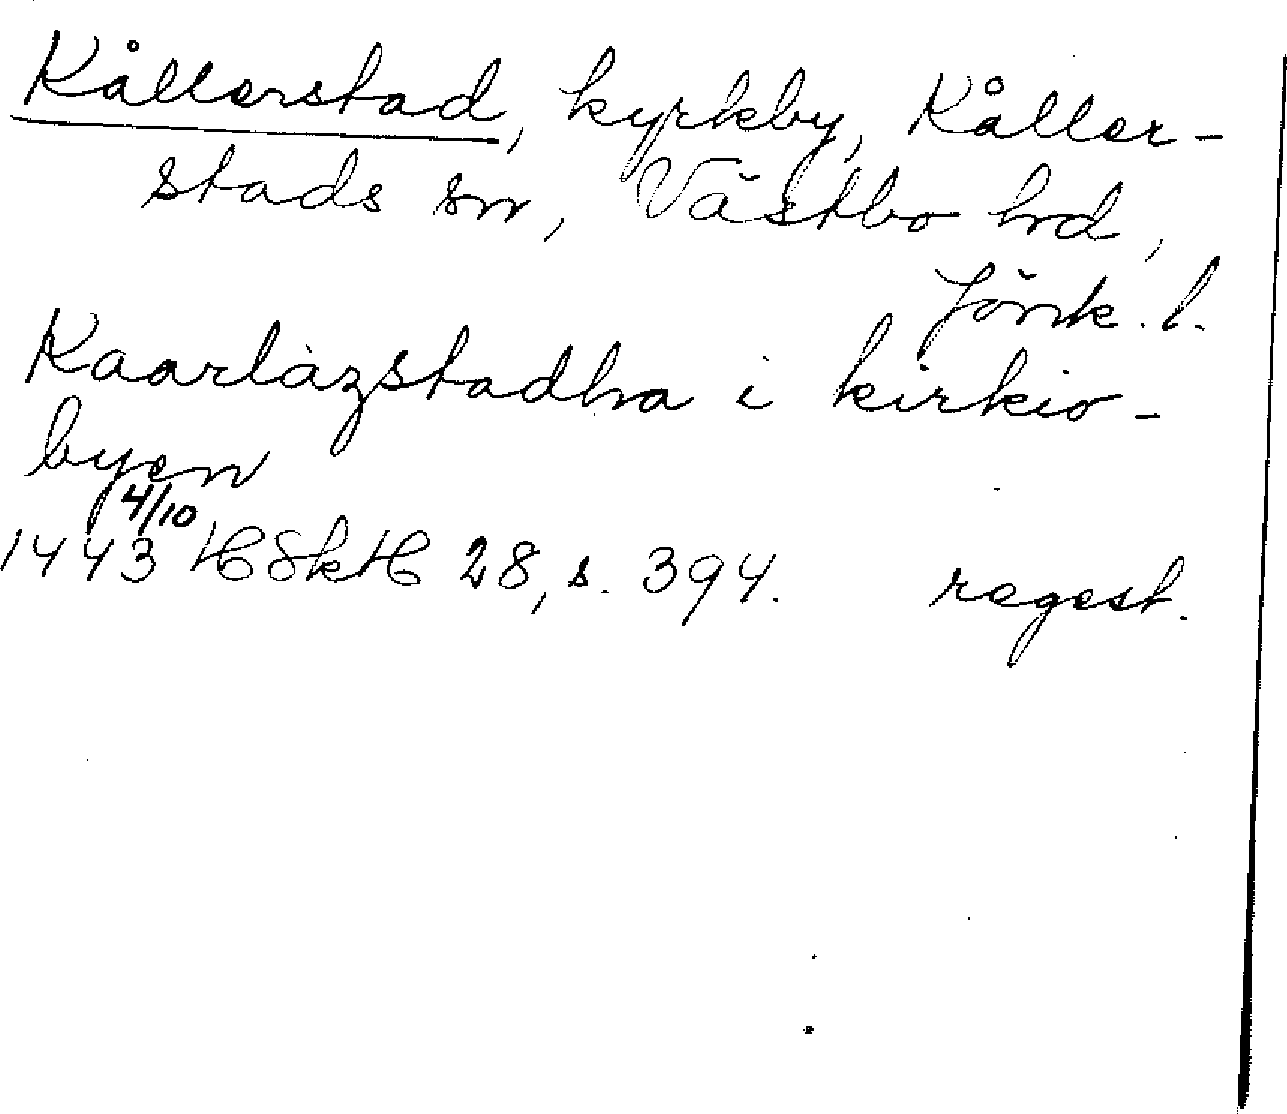 Kållerstad, kyrkby, Kåller-
stads sn, Västbo hd,
Jönk. l.
Kaarlazstadha i kirkio-
byen
1443 4/10 HSkH 28, s. 394. regest.